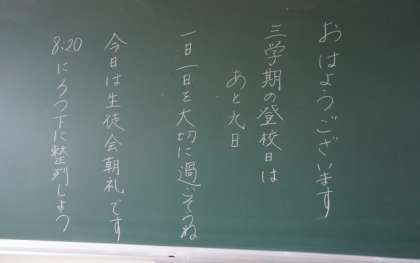 おはようございます
三学期の登校日は
あと九日
一日一日を大切に過ごそうね
今日は生徒会朝礼です
8:20にろう下に整列しよう